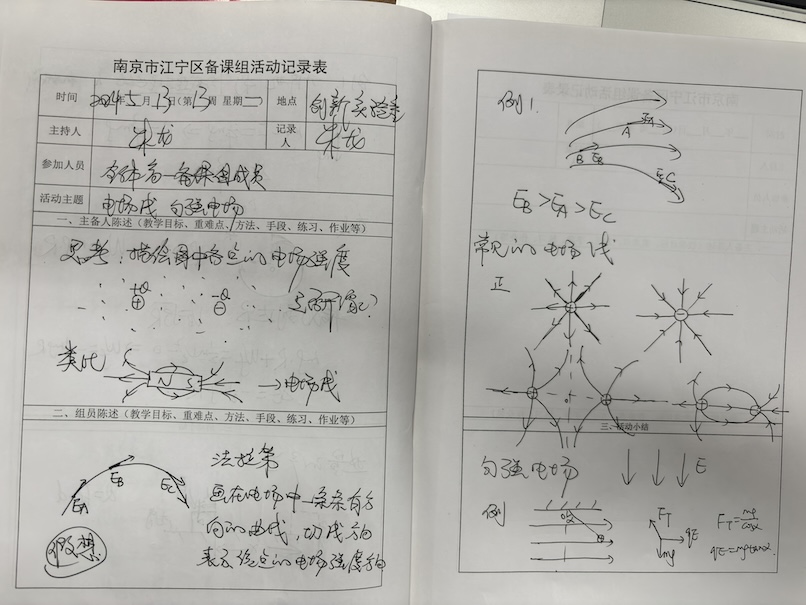 南京市江宁区备课组活动记录表
时间 2024年5月13日(第13周 星期二) 地点 创新实验室
主持人 朱龙 记录人 朱龙
参加人员 全体高一备课组成员
活动主题 电场线 匀强电场
一、主备人陈述(教学目标、重难点、方法、手段、练习、作业等)
思考:描绘图中各点的电场强度
+Q -Q
⊕ ⊖
类比 N S →电场线
二、组员陈述(教学目标、重难点、方法、手段、练习、作业等)
EA EB EC
法拉第
画在电场中一条条有方
向的曲线,切线方向
表示该点的电场强度方向
假想
例1.
A EA
B EB
EC
EB>EA>EC
常见的电场线
正
三、活动小结
匀强电场 E
例
α
FT qE mg
FT=mg/cosα
qE=mgtanα